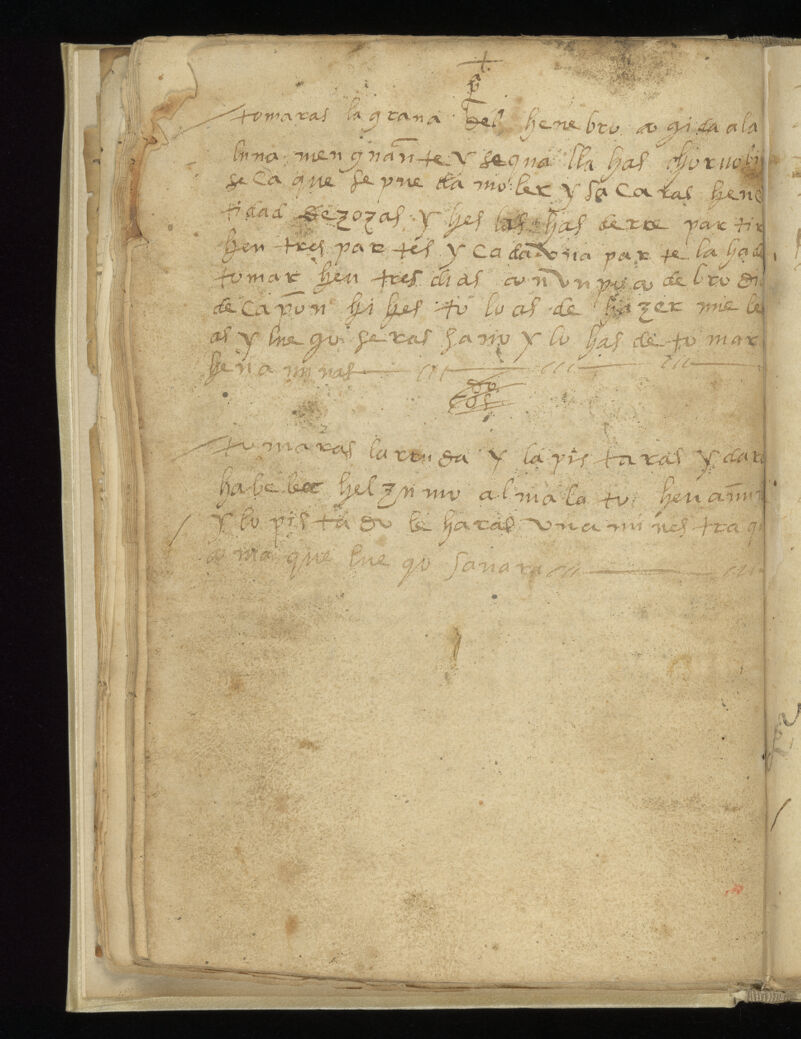 +
p
tomaras la grana del henebro cogida a la
luna menguante y sequa lla has
seca que se pueda moler y sacaras hen
tidad de zozas y hes las has de rre partir
hen tres partes y cada vna parte la ha de
tomar hen tres dias con vn poco de brodi
de capon hi hes to lo as de hazer nue be
as y luego seras sano y lo has de tomar
hena iunas
tomaras la rruda y la pistaras y dar
ha beber hel zumo al mala to hen
y lo pistado le haras vna mines tra
que luego sanara